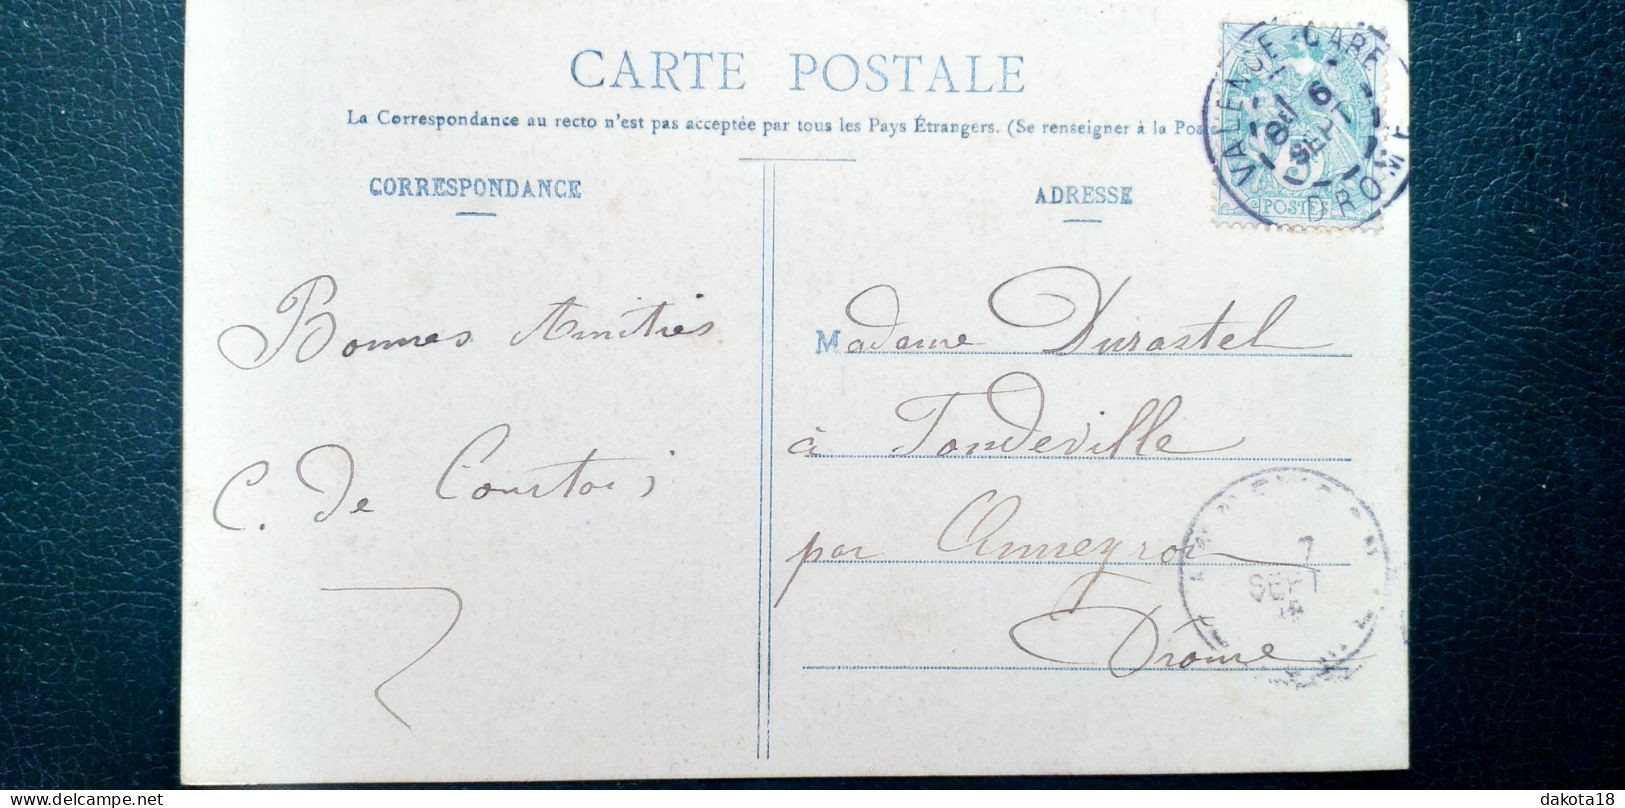 CARTE POSTALE
La Correspondance au recto n'est pas acceptée par tous les Pays Étrangers. (Se renseigner à la Pos
CORRESPONDANCE
ADRESSE
VALENCE - GARE
DROME
6
SEPT
POSTES
Bonnes Amitiés
C. de Courtois
Madame Durastel
à Tondeville
par Anneyron
Drome
7
SEPT
dakota18